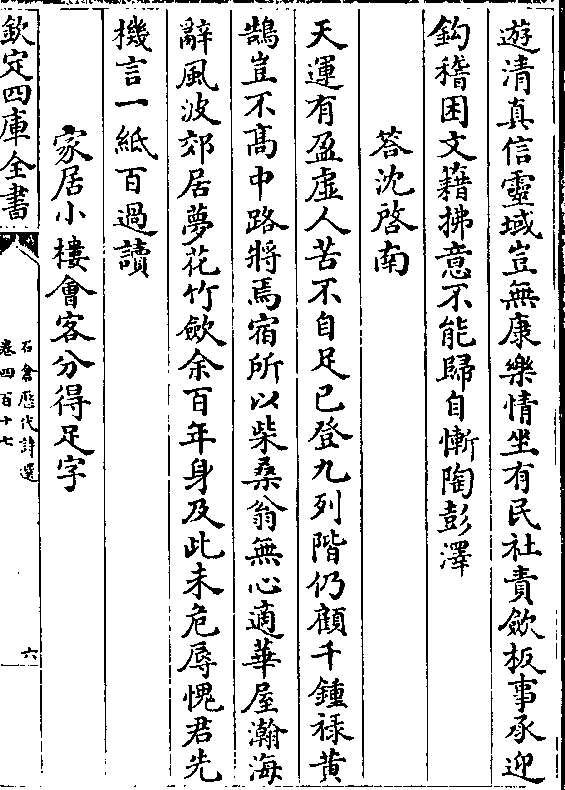 遊清真信靈域豈無康樂情坐有民社責斂板事承迎
鈎稽困文藉拂意不能歸自慚陶彭澤
答沈啓南
天運有盈虛人苦不自足已登九列階仍顧千鍾禄黄
鵠豈不髙中路將焉宿所以柴桑翁無心適華屋瀚海
辭風波郊居夢花竹歛余百年身及此未危辱愧君先
機言一紙百過讀
家居小樓會客分得足字
欽定四庫全書
石倉歴代詩選
卷四百十七
六